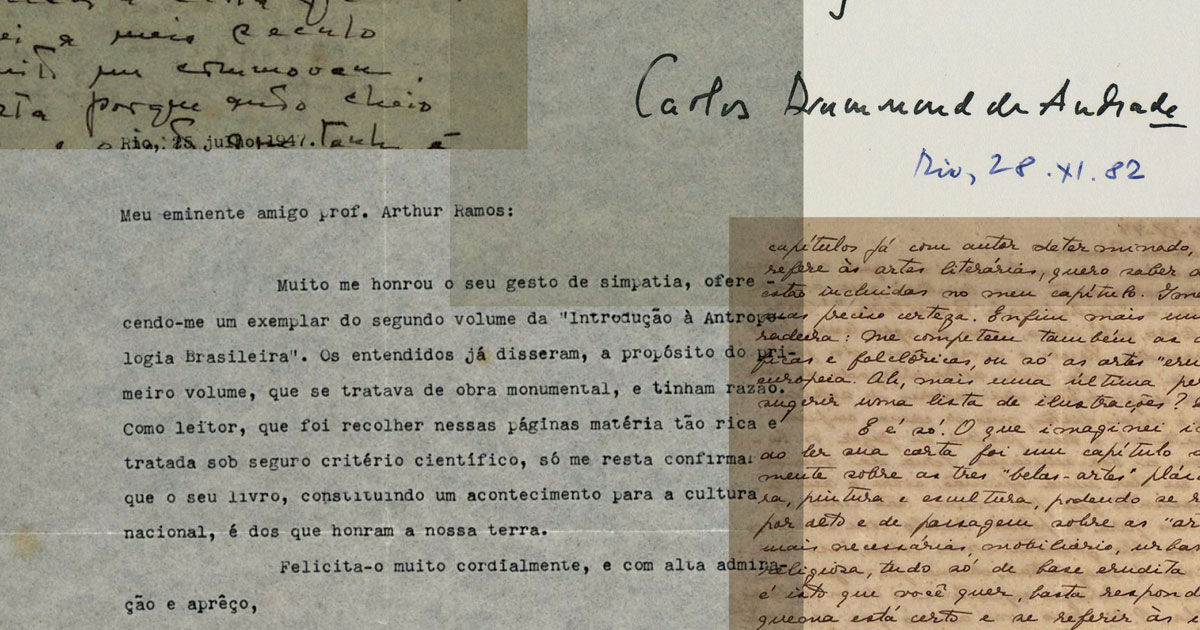 meio seculo
porque cheio
Carlos Drummond de Andrade
Rio, 28.XI.82
Rio, 25 julho 1947.
Meu eminente amigo prof. Arthur Ramos:
Muito me honrou o seu gesto de simpatia, ofere-
cendo-me um exemplar do segundo volume da "Introdução à Antropo-
logia Brasileira". Os entendidos já disseram, a propósito do pri-
meiro volume, que se tratava de obra monumental, e tinham razão.
Como leitor, que foi recolher nessas páginas matéria tão rica e
tratada sob seguro critério científico, só me resta confirmar
que o seu livro, constituindo um acontecimento para a cultura
nacional, é dos que honram a nossa terra.
Felicita-o muito cordialmente, e com alta admira-
ção e aprêço,
capítulos já com autor determinado,
refere às artes literárias, quero saber
estão incluidas no meu capítulo.
preciso certeza. Enfim mais uma
: me competem também as
e folclóricas, ou só as artes "eru
européia. Ah, mais uma última
sugerir uma lista de ilustrações?
E é só. O que imaginei
ao ler sua carta foi um capítulo
mente sobre as tres "belas-artes" plás
ra, pintura e escultura, podendo se
por alto e de passagem sobre as "ar
mais necessárias, mobiliário, urba
religiosa, tudo só de base erudita
é isto que você quer, basta respond
está certo e se referir às